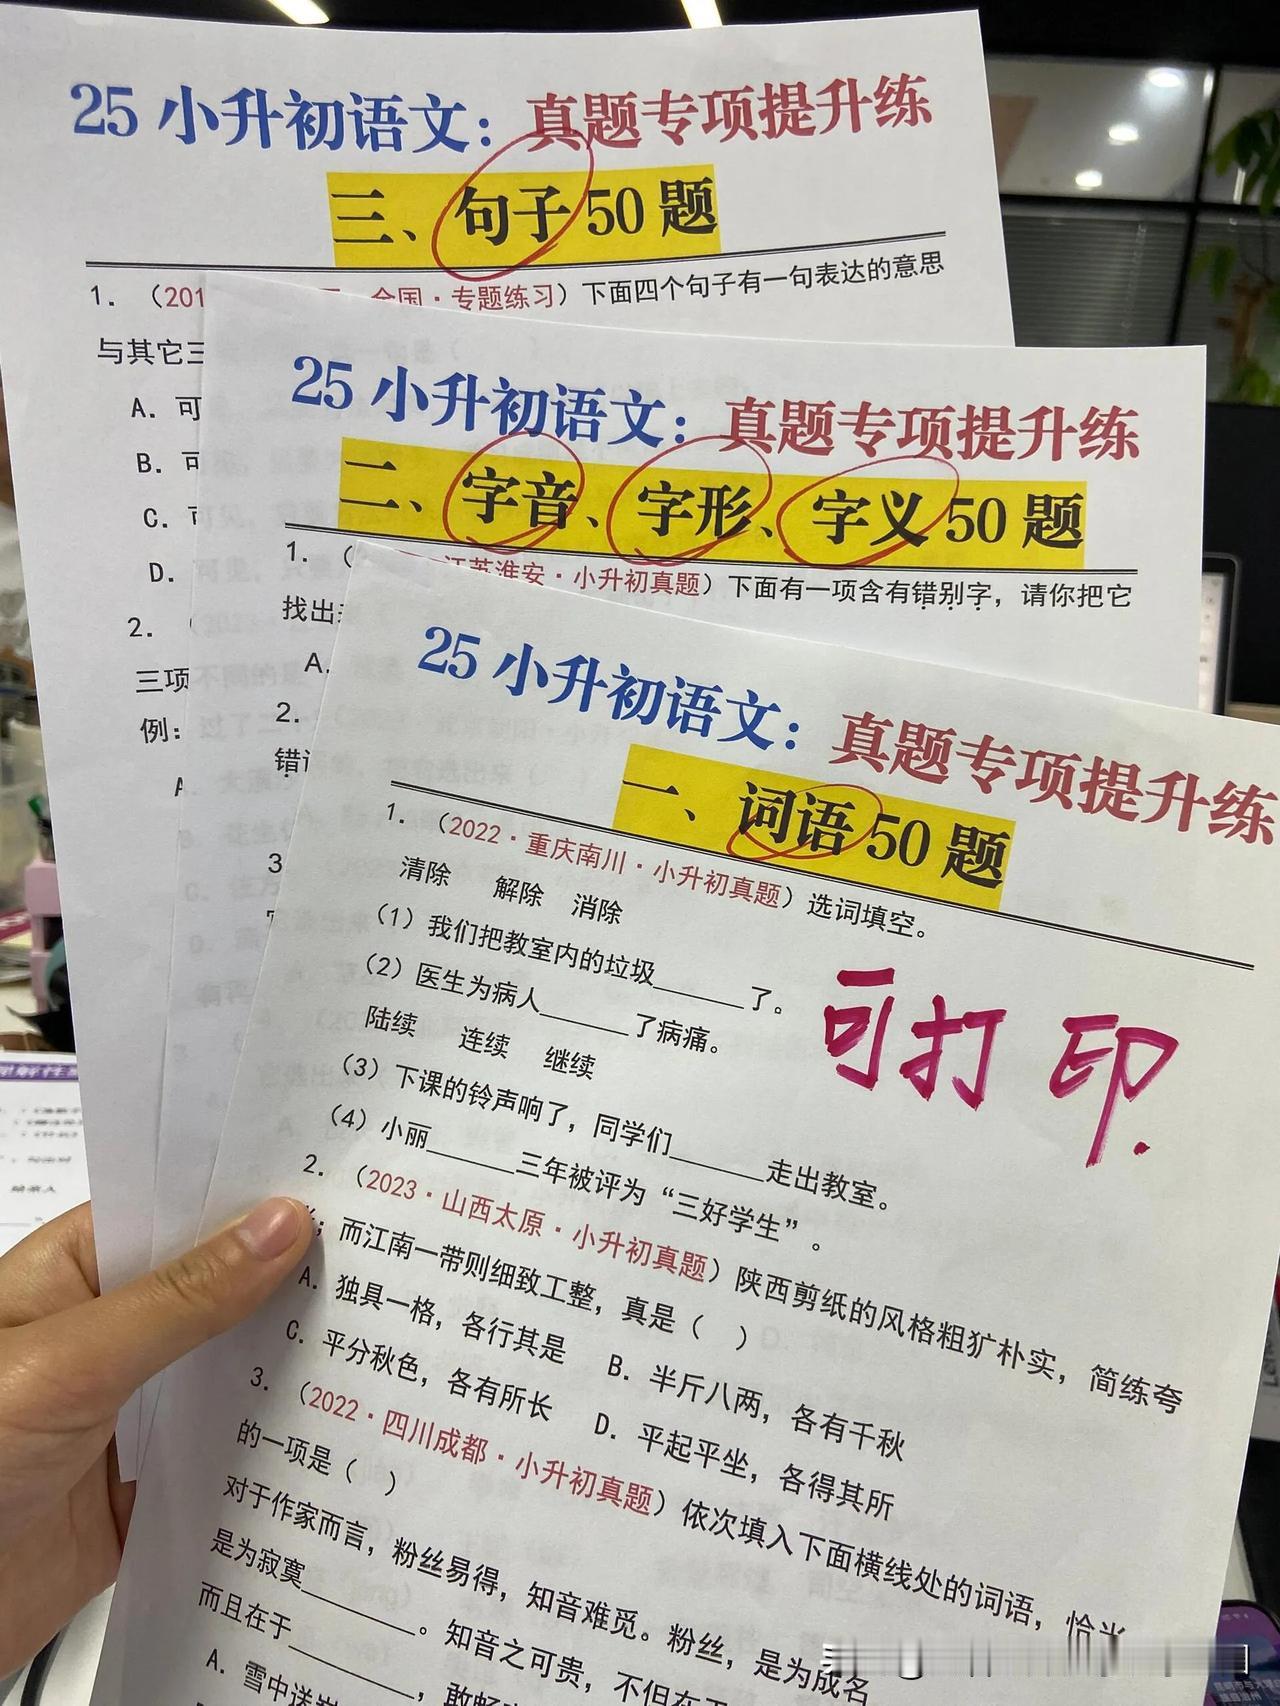 25 小升初语文：真题专项提升练
三、句子 50 题
1. （201 全国·专题练习）下面四个句子有一句表达的意思
与其它三
A. 可
B. 可
C. 可
D.
2.
三项
例：
A
25 小升初语文：真题专项提升练
二、字音、字形、字义 50 题
1. （ 江苏淮安·小升初真题）下面有一项含有错别字，请你把它
找出来
A.
2.
错误
3
25 小升初语文：真题专项提升练
一、词语 50 题
1. （2022·重庆南川·小升初真题）选词填空。
清除 解除 消除
（1）我们把教室内的垃圾______了。
（2）医生为病人______了病痛。
陆续 连续 继续
（3）下课的铃声响了，同学们______走出教室。
（4）小丽______三年被评为“三好学生”。
可打印.
2. （2023·山西太原·小升初真题）陕西剪纸的风格粗犷朴实，简练夸
；而江南一带则细致工整，真是（ ）
A. 独具一格，各行其是 B. 半斤八两，各有千秋
C. 平分秋色，各有所长 D. 平起平坐，各得其所
3. （2022·四川成都·小升初真题）依次填入下面横线处的词语，恰当
的一项是（ ）
对于作家而言，粉丝易得，知音难觅。粉丝，是为成名
是为寂寞______。知音之可贵，不但在于
而且在于______，敢
A. 雪中送